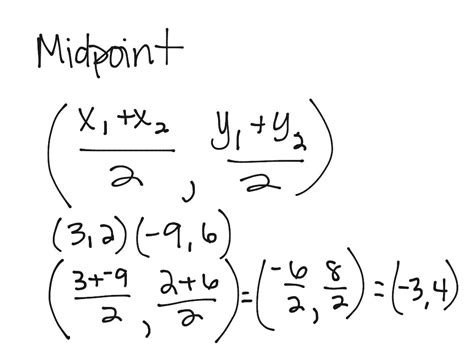 Midpoint
(x₁+x₂/2, y₁+y₂/2)
(3,2)(-9,6)
(3+-9/2, 2+6/2)=(-6/2, 8/2)=(-3,4)